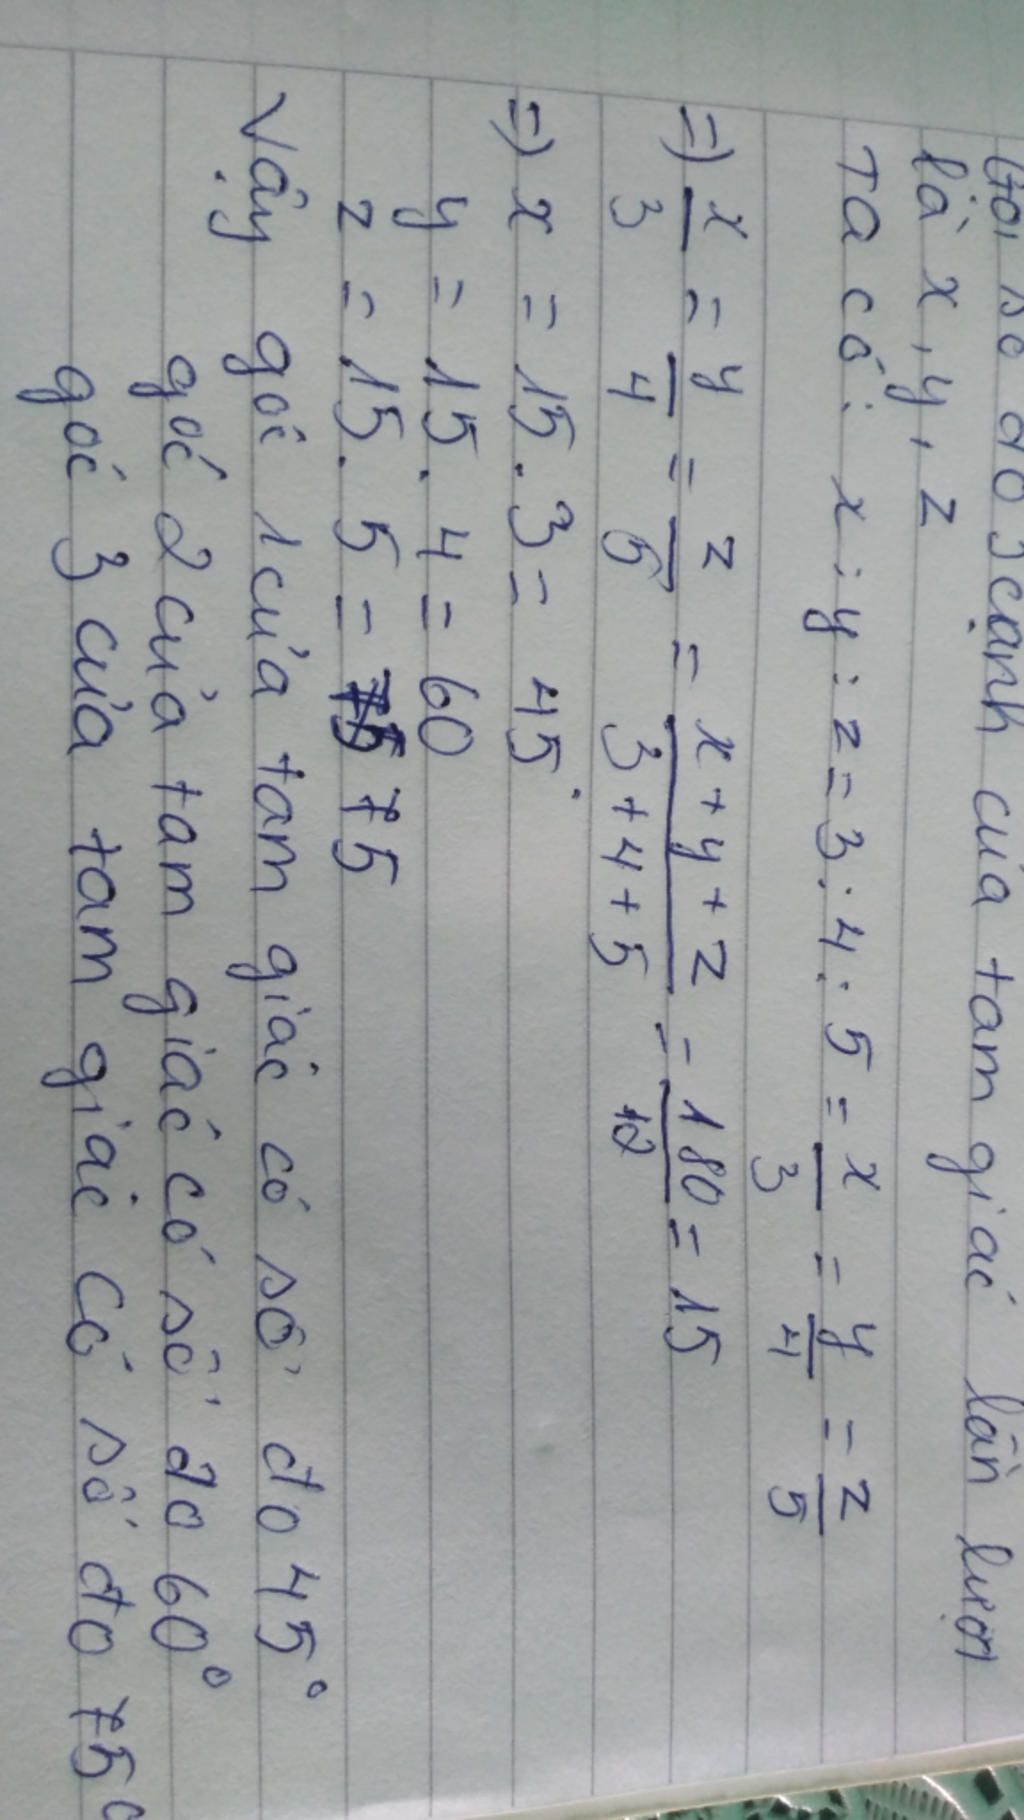 Gọi số đo 3 cạnh của tam giác lần lượt
là x, y, z
Ta có: x : y : z = 3 : 4 : 5 = x/3 = y/4 = z/5
=) x/3 = y/4 = z/5 = x + y + z/3 + 4 + 5 = 180/12 = 15
=) x = 15 . 3 = 45
y = 15 . 4 = 60
z = 15 . 5 = 75
Vậy góc 1 của tam giác có số đo 45°
góc 2 của tam giác có số đo 60°
góc 3 của tam giác có số đo 75°